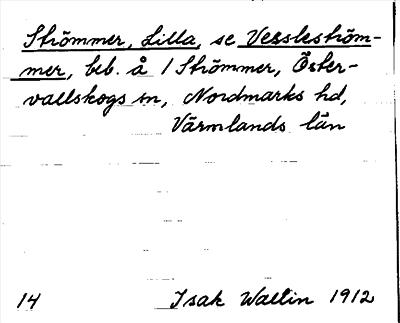 Strömmer, Lilla, se Vessleström-
mer, beb. å 1 Strömmer, Öster-
vallskogs sn, Nordmarks hd,
Värmlands län
14 Isak Wallin 1912